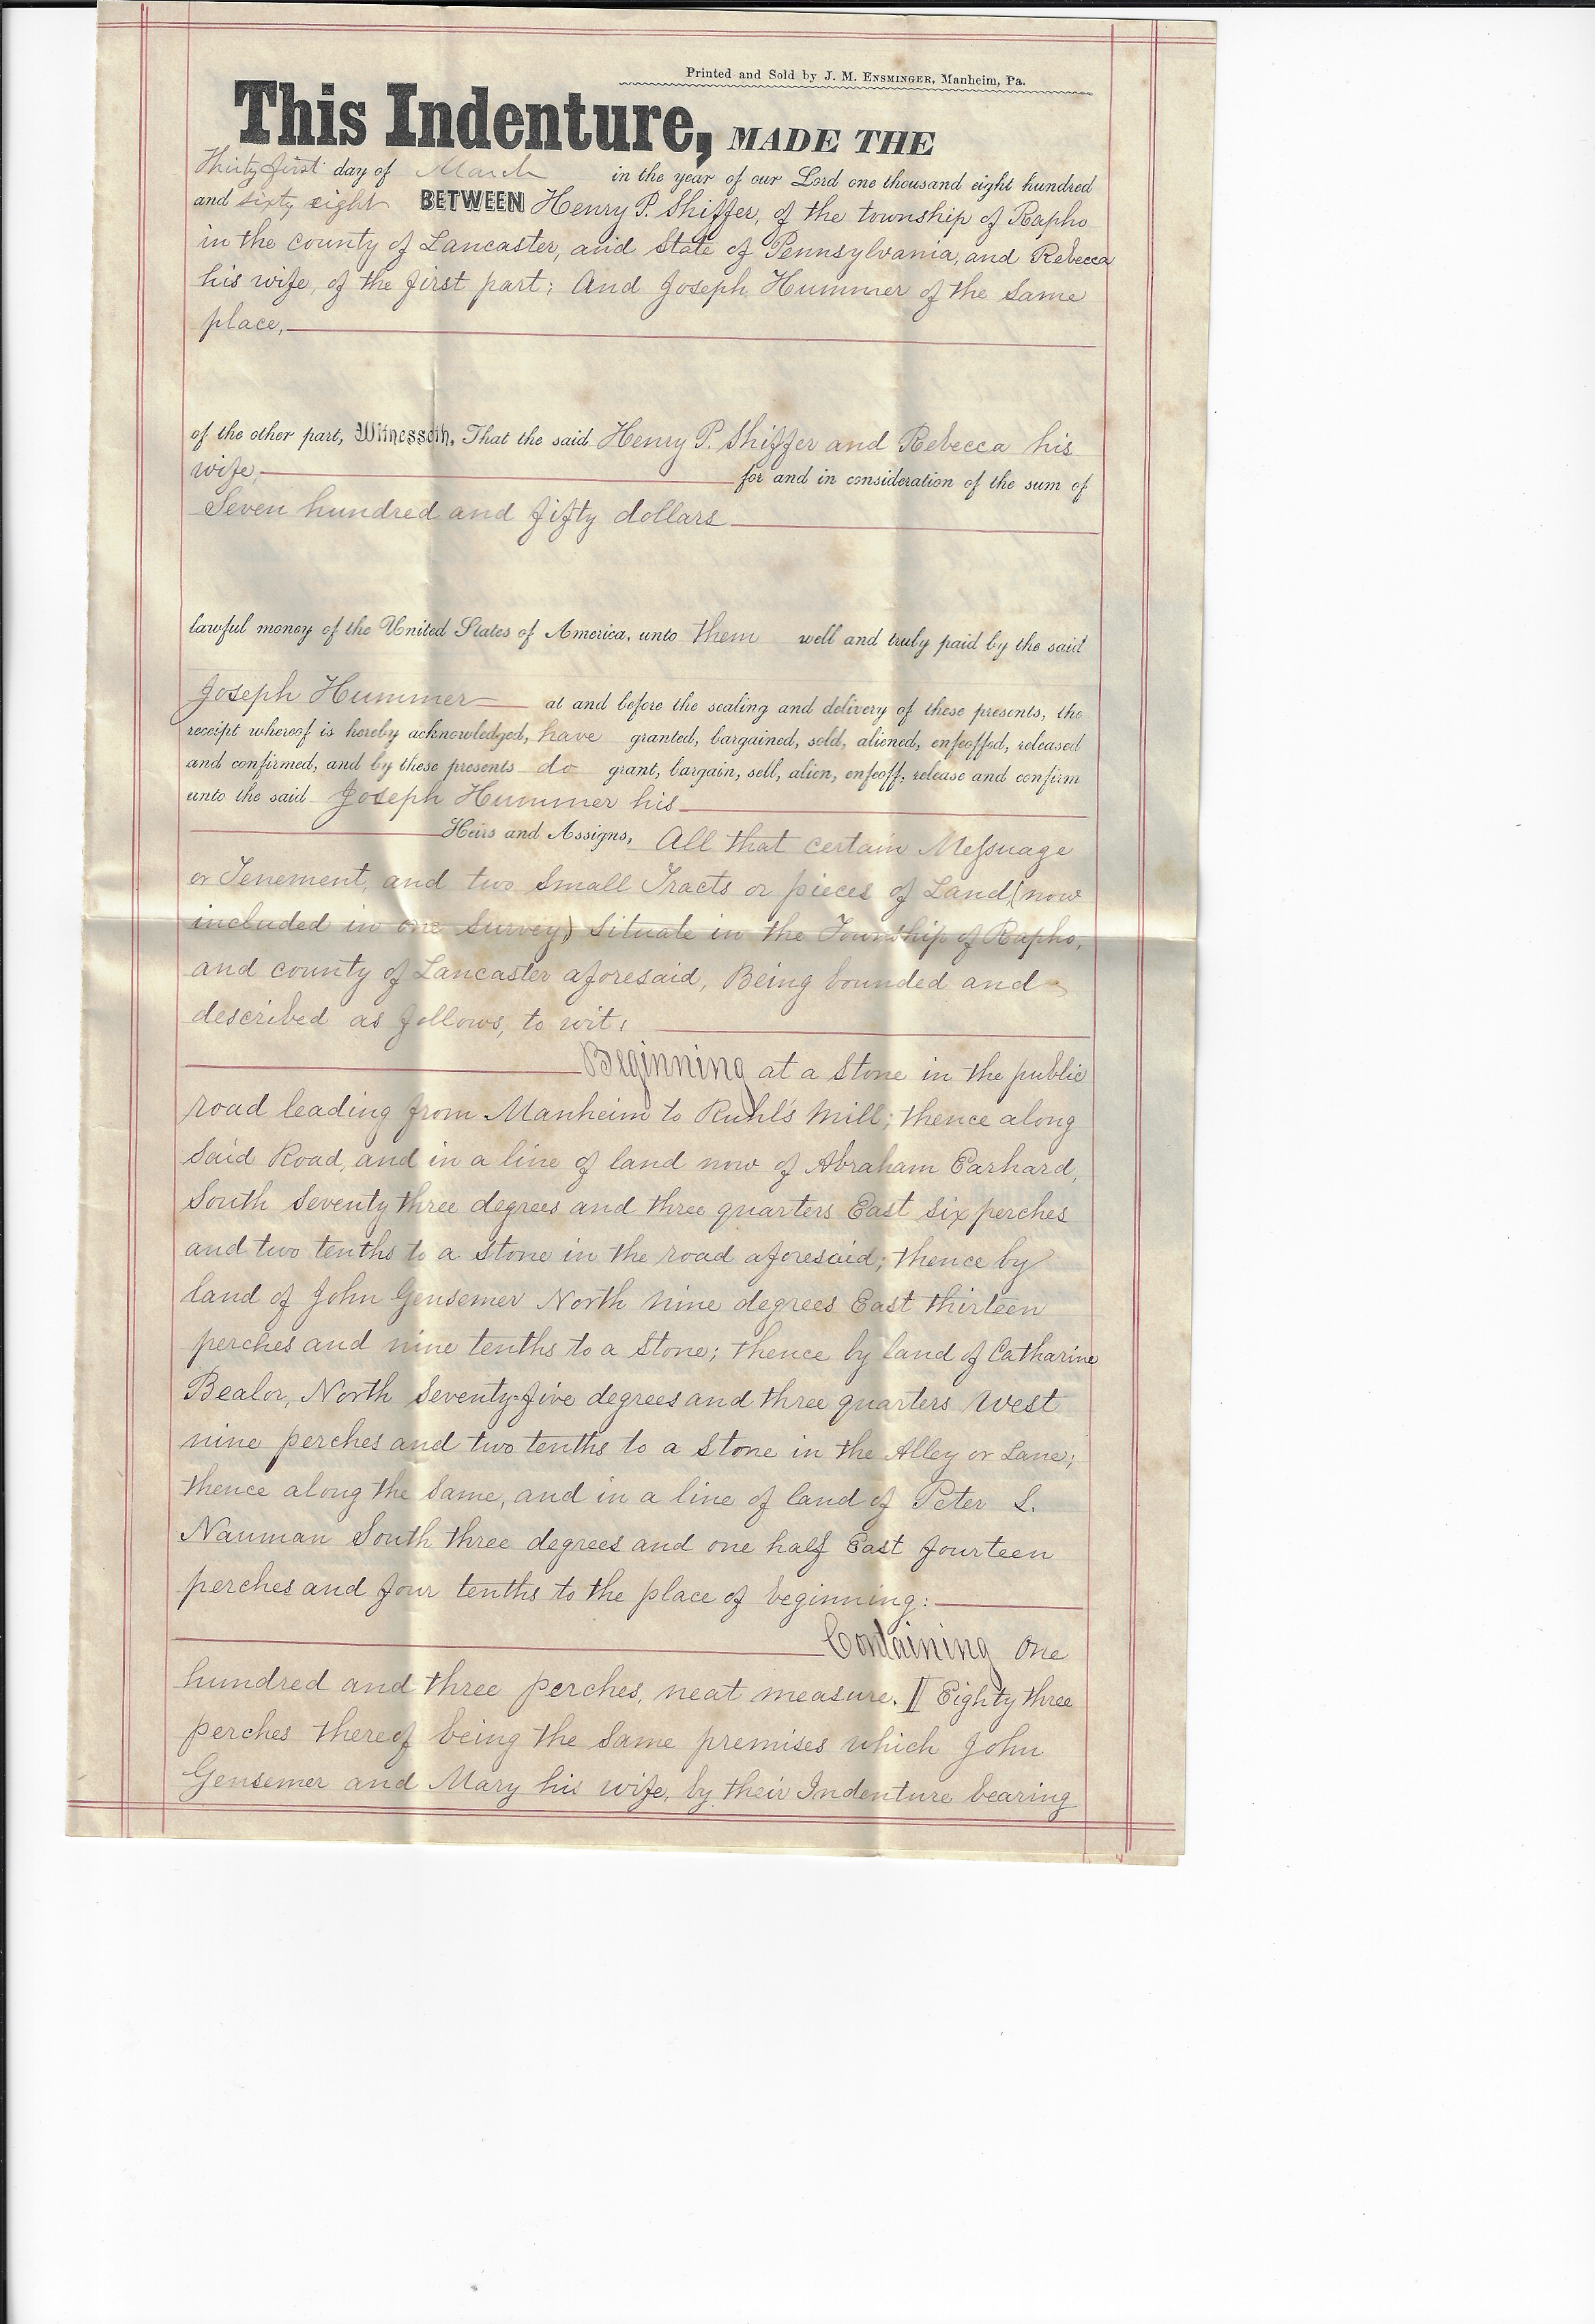 Printed and Sold by J. M. ENSMINGER, Manheim, Pa.
This Indenture, MADE THE
Thirty first day of March in the year of our Lord one thousand eight hundred
and sixty eight BETWEEN Henry P. Shiffer, of the township of Rapho
in the county of Lancaster, and State of Pennsylvania, and Rebecca
his wife, of the first part; And Joseph Hummer of the same
place,
of the other part, Witnesseth, That the said Henry P. Shiffer and Rebecca his
wife, for and in consideration of the sum of
Seven hundred and fifty dollars
lawful money of the United States of America, unto them well and truly paid by the said
Joseph Hummer at and before the sealing and delivery of these presents, the
receipt whereof is hereby acknowledged, have granted, bargained, sold, aliened, enfeoffed, released
and confirmed, and by these presents do grant, bargain, sell, alien, enfeoff, release and confirm
unto the said Joseph Hummer his
Heirs and Assigns, All that certain Messuage
or Tenement, and two Small Tracts or pieces of Land (now
included in one Survey) Situate in the Township of Rapho,
and county of Lancaster aforesaid, Being bounded and
described as follows, to wit:
Beginning at a Stone in the public
road leading from Manheim to Ruhl's Mill; thence along
Said Road, and in a line of land now of Abraham Earhard,
South Seventy three degrees and three quarters East six perches
and two tenths to a Stone in the road aforesaid; thence by
land of John Gensemer North nine degrees East thirteen
perches and nine tenths to a Stone; thence by land of Catharine
Bealor, North Seventy-five degrees and three quarters West
nine perches and two tenths to a Stone in the Alley or Lane;
thence along the same, and in a line of land of Peter S.
Nauman South three degrees and one half East fourteen
perches and four tenths to the place of beginning:
Containing One
hundred and three perches, neat measure. Eighty three
perches thereof being the same premises which John
Gensemer and Mary his wife, by their Indenture bearing